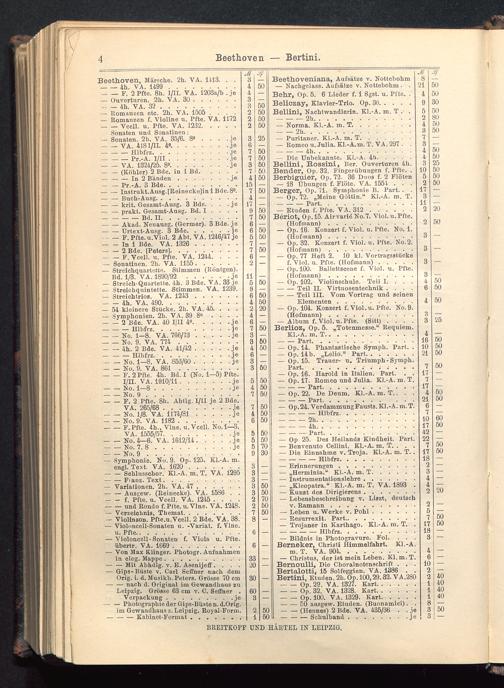 4
Beethoven — Bertini.
Beethoven, Märsche. 2h. VA. 1413. . . . 3 —
— — 4h. VA. 1499 . . . 4 50
— F. 2 Pfte. 8h. I/II. VA. 1203a/b . je 3 —
— Ouverturen. 2h. VA. 30 . . . 3 —
— — 4h. VA. 32 . . . 3 50
— Romanzen etc. 2h. VA. 1505 . . . 2 50
— Romanzen f. Violine u. Pfte. VA. 1172 2 50
— — Vcell. u. Pfte. VA. 1232. . . 2 50
— Sonaten und Sonatinen
— Sonaten. 2h. VA. 35/6. 8º . . . je 3 25
— — VA. 4181/II. 4º . . . je 6 —
— — — Hlbfrz. . . . je 7 50
— — — Pr.-A. I/II . . . je 7 50
— — VA. 1324/25. 8º . . . je 3 50
— — (Köhler) 2 Bde. in 1 Bd. . . . 7 50
— — — In 2 Bänden . . . je 4 50
— — Pr.-A. 3 Bde. . . . 15 —
— — Instrukt. Ausg. (Reinecke) in 1 Bde. 8º. 7 50
— — Buth-Ausg. . . . 4 —
— — krit. Gesamt-Ausg. 3 Bde. . . . 17 —
— — prakt. Gesamt-Ausg. Bd. I . . . 9 50
— — — Bd. II. . . . 7 50
— — Akad. Neuausg. (Germer). 3 Bde. je 5 —
— — Urtext-Ausg. 3 Bde. . . . je 6 50
— — F. Pfte. u. Viol. 2 Abt. VA. 1246/47 je 5 50
— — In 1 Bde. VA. 1326 . . . 7 —
— — 2 Bde. (Peters). . . . 7 50
— — F. Vcell. u. Pfte. VA. 1244. . . . 6 —
— Sonatinen. 2h. VA. 1155 . . . 2 —
— Streichquartette. Stimmen (Röntgen).
Bd. 1/3. VA. 1890/92 . . . je 11 —
— Streich-Quartette. 4h. 3 Bde. VA. 38 je 5 50
— Streichquintette. Stimmen. VA. 1239. 9 —
— Streichtrios. VA. 1243 . . . 6 50
— — 4h. VA. 490. . . . 4 50
— 54 kleinere Stücke. 2h. VA. 45. . . . 2 50
— Symphonien. 2h. VA. 39 8º . . . 4 —
— — 2 Bde. VA. 40 I/II 4º. . . . je 6 —
— — — Hlbfrz. . . . je 7 50
— — No. 1—8. VA. 766/73 . . . je 3 —
— — No. 9. VA. 774 . . . 3 50
— — 4h. 2 Bde. VA. 41/42 . . . je 4 50
— — — Hlbfrz. . . . je 6 —
— — No. 1—8. VA. 853/60 . . . je 3 —
— — No. 9. VA. 861 . . . 3 50
— — F. 2 Pfte. 4h. Bd. I (No. 1—5) Pfte.
I/II. VA. 1910/11 . . . je 5 50
— — No. 1—8 . . . je 4 50
— — No. 9 . . . 7 50
— — F. 2 Pfte. 8h. Abtlg. I/II je 2 Bde.
VA. 265/68 . . . je 7 50
— — No. 1/8. VA. 1174/81 . . . je 4 50
— — No. 9. VA. 1182 . . . 6 50
— — F. Pfte. 4h. Vlne. u. Vcell. No. 1—3.
VA. 1555/57. . . . je 5 50
— — No. 4—6. VA. 1612/14 . . . je 5 50
— — No. 7. 8 . . . je 5 70
— — No. 9 . . . 9 30
— Symphonie. No. 9. Op. 125. Kl.-A. m.
engl. Text. VA. 1620 . . . 3 —
— — Schlusschor. Kl.-A. m. T. VA. 1295 3 —
— — Franz. Text . . . 3 —
— Variationen. 2h. VA. 47 . . . 3 50
— — Ausgew. (Reinecke). VA. 1586 . . . 3 50
— — f. Pfte. u. Vcell. VA. 1245 . . . 2 70
— — und Rondo f. Pfte. u. Vlne. VA. 1248. 2 50
— Verzeichnis, Themat. . . . 7 50
— Violinson. Pfte. u. Vcell. 2 Bde. VA. 38. 8 —
— Violoncell-Sonaten u. Variat. f. Vlne.
u. Pfte. . . . 6 —
— Violoncell-Sonaten f. Viola u. Pfte.
übertr. VA. 1669 . . . 6 —
— Von Max Klinger. Photogr. Aufnahmen
in eleg. Mappe . . . 33 —
— Mit Abhdlg. v. E. Asenijeff . . . 20 —
— Gips-Büste v. Carl Seffner nach dem
Orig. i. d. Musikb. Peters. Grösse 70 cm 30 —
— — nach d. Original im Gewandhaus zu
Leipzig. Grösse 63 cm v. C. Seffner 60 —
— Verpackung . . . je 3 —
— Photographie der Gips-Büsten n. d. Orig.
im Gewandhaus z. Leipzig. Royal-Form. 2 50
— — — Kabinet-Format . . . 1 50
Beethoveniana, Aufsätze v. Nottebohm 8 —
— Nachgelass. Aufsätze v. Nottebohm . 21 50
Behr, Op. 5. 6 Lieder f. 1 Sgst. u. Pfte. . 4 50
Beliczay, Klavier-Trio. Op. 30. . . . 9 30
Bellini, Nachtwandlerin. Kl.-A. m. T. . 5 50
— — 2h. . . . 2 80
— Norma. Kl.-A. m. T. . . . 4 50
— — 2h. . . . 3 50
— Puritaner. Kl.-A. m. T. . . . 7 —
— Romeo u. Julia. Kl.-A. m. T. VA. 297 . 3 —
— — 4h. . . . 4 50
— Die Unbekannte. Kl.-A. 4h. . . . 4 50
Bellini, Rossini, Ber. Ouverturen 4h. 3 25
Bender, Op. 32. Fingerübungen f. Pfte. 10 50
Berbiguier, Op. 72. 36 Duos f. 2 Flöten 5 50
— 18 Übungen f. Flöte. VA. 1554 . . . 2 50
Berger, Op. 71. Symphonie B. Part. . . . 17 —
— Op. 72. „Meine Göttin." Kl.-A. m. T. 3 —
— — Part. . . . 11 —
— Etuden f. Pfte. VA. 312 . . . 2 20
Bériot, Op. 15. Airvarié No. 7. Viol. u. Pfte.
(Hofmann) . . . 2 50
— Op. 16. Konzert f. Viol. u. Pfte. No. 1.
(Hofmann) . . . 3 —
— Op. 32. Konzert f. Viol. u. Pfte. No. 2.
(Hofmann) . . . 3 —
— Op. 77 Heft 2. 10 kl. Vortragsstücke
f. Viol. u. Pfte. (Hofmann) . . . 3 —
— Op. 100. Balletszene f. Viol. u. Pfte.
(Hofmann) . . . 3 —
— Op. 102. Violinschule. Teil I. . . . 4 50
— — Teil II. Virtuosentechnik . . . 6 50
— — Teil III. Vom Vortrag und seinen
Elementen . . . 4 50
— Op. 104. Konzert f. Viol. u. Pfte. No. 9.
(Hofmann) . . . 3 —
— Album f. Viol. u. Pfte. (Sitt) . . . 3 25
Berlioz, Op. 5. „Totenmesse." Requiem.
Kl.-A. m. T. . . . 4 —
— — Part. . . . 16 50
— Op. 14. Phantastische Symph. Part. . 10 50
— Op. 14b. „Lelio." Part. . . . 21 50
— Op. 15. Trauer- u. Triumph-Symph.
Part. . . . 7 50
— Op. 16. Harold in Italien. Part. . . . 17 —
— Op. 17. Romeo und Julia. Kl.-A. m. T. 7 —
— — Part. . . . 17 —
— Op. 22. Te Deum. Kl.-A. m. T. . . . 4 50
— — Part. . . . 21 —
— Op. 24. Verdammung Fausts. Kl.-A. m. T. 6 —
— — — Hlbfrz. . . . 7 —
— — 2h. . . . 10 60
— — 4h. . . . 17 —
— — Part. . . . 42 —
— Op. 25. Des Heilands Kindheit. Part. 22 —
— Benvenuto Cellini. Kl.-A. m. T. . . . 7 50
— Die Einnahme v. Troja. Kl.-A. m. T. . 17 50
— — — Hlbfrz. . . . 18 —
— Erinnerungen . . . 2 —
— „Herminia." Kl.-A. m. T. . . . 3 —
— Instrumentationslehre . . . 4 —
— „Kleopatra." Kl.-A. m. T. VA. 1893 4 —
— Kunst des Dirigierens . . . 2 20
— Lebensbeschreibung v. Liszt, deutsch
v. Ramann . . . 2 —
— Leben u. Werke v. Pohl . . . 5 —
— Resurrexit. Part. . . . 7 50
— Trojaner in Karthago. Kl.-A. m. T. . 17 50
— — — Hlbfrz. . . . 18 —
— Bildnis in Photogravure. Fol. . . . 3 —
Berneker, Christi Himmelfahrt. Kl.-A.
m. T. VA. 904. . . . 4 —
— Christus, der ist mein Leben. Kl.-A. m. T. 6 —
Bernoulli, Die Choralnotenschrift . . . 10 —
Bertalotti, 15 Solfeggien. VA. 1386 . . . 2 —
Bertini, Etuden. 2h. Op. 100, 29, 32. VA. 280 2 40
— Op. 29. VA. 1327. Kart. . . . 1 40
— Op. 32. VA. 1328. Kart. . . . 1 40
— Op. 100. VA. 1329. Kart. . . . 1 40
— 50 ausgew. Etuden. (Buonamici) . . . 8 —
— (Hennes) 2 Bde. VA. 435/36 . . . je 3 50
— — Schulband . . . je 3 —
BREITKOPF UND HÄRTEL IN LEIPZIG.